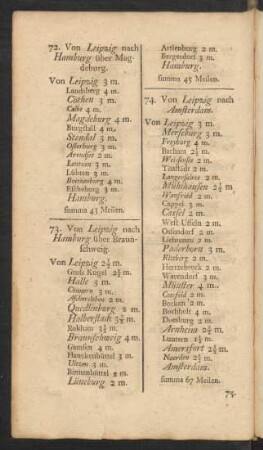 72. Von Leipzig nach
Hamburg über Mag-
deburg.
Von Leipzig 3 m.
Landsberg 4 m.
Cothen 3 m.
Calbe 4 m.
Magdeburg 4 m.
Burgstall 4 m.
Stendal 3 m.
Osterburg 3 m.
Arendsee 2 m.
Lentzen 3 m.
Lübten 3 m.
Boitzenburg 4 m.
Escheburg 3 m.
Hamburg.
summa 43 Meilen.
73. Von Leipzig nach
Hamburg über Braun-
schweig.
Von Leipzig 2½ m.
Gros Kugel 2½ m.
Halle 3 m.
Connern 3 m.
Aschersleben 2 m.
Quedlinburg 2 m.
Halberstadt 3½ m.
Roklum 3½ m.
Braunschweig 4 m.
Gamsen 4 m.
Hanckensbüttel 3 m.
Ultzen 3 m.
Bienenbüttel 2 m.
Lüneburg 2 m.
Artlenburg 2 m.
Bergedorf 3 m.
Hamburg.
summa 45 Meilen.
74. Von Leipzig nach
Amsterdam.
Von Leipzig 3 m.
Merseburg 3 m.
Freyburg 4 m.
Buttstadt 2½ m.
Weissensee 2 m.
Tennstädt 2 m.
Langensaltze 2 m.
Mühlhausen 2½ m.
Wanfried 2 m.
Cappel 3 m.
Cassel 2 m.
West Uffeln 2 m.
Ossendorf 2 m.
Lichtenau 2 m.
Paderborn 3 m.
Rietberg 2 m.
Hertzebrock 2 m.
Warendorf 3 m.
Münster 4 m.
Coesfeld 2 m.
Borken 2 m.
Bocholt 4 m.
Doesburg 2 m.
Arnheim 2½ m.
Lunteren 1½ m.
Amersfort 2½ m.
Naerden 2½ m.
Amsterdam.
summa 67 Meilen.
75.